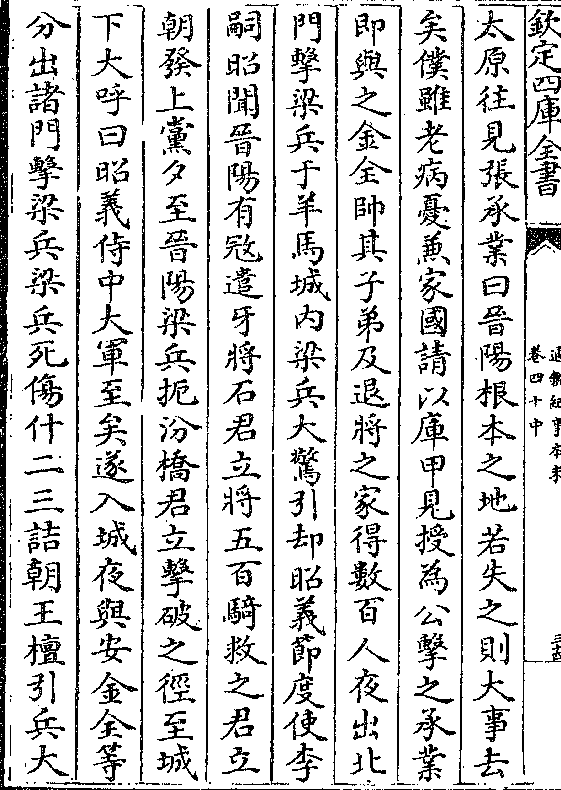 欽定四庫全書
通鑑紀事本末
卷四十中
太原往見張承業曰晉陽根本之地若失之則大事去
矣僕雖老病憂兼家國請以庫甲見授為公擊之承業
即與之金全帥其子弟及退將之家得數百人夜出北
門擊梁兵于羊馬城内梁兵大驚引却昭義節度使李
嗣昭聞晉陽有宼遣牙將石君立將五百騎救之君立
朝發上黨夕至晉陽梁兵扼汾橋君立擊破之徑至城
下大呼曰昭義侍中大軍至矣遂入城夜與安金全等
分出諸門擊梁兵梁兵死傷什二三詰朝王檀引兵大